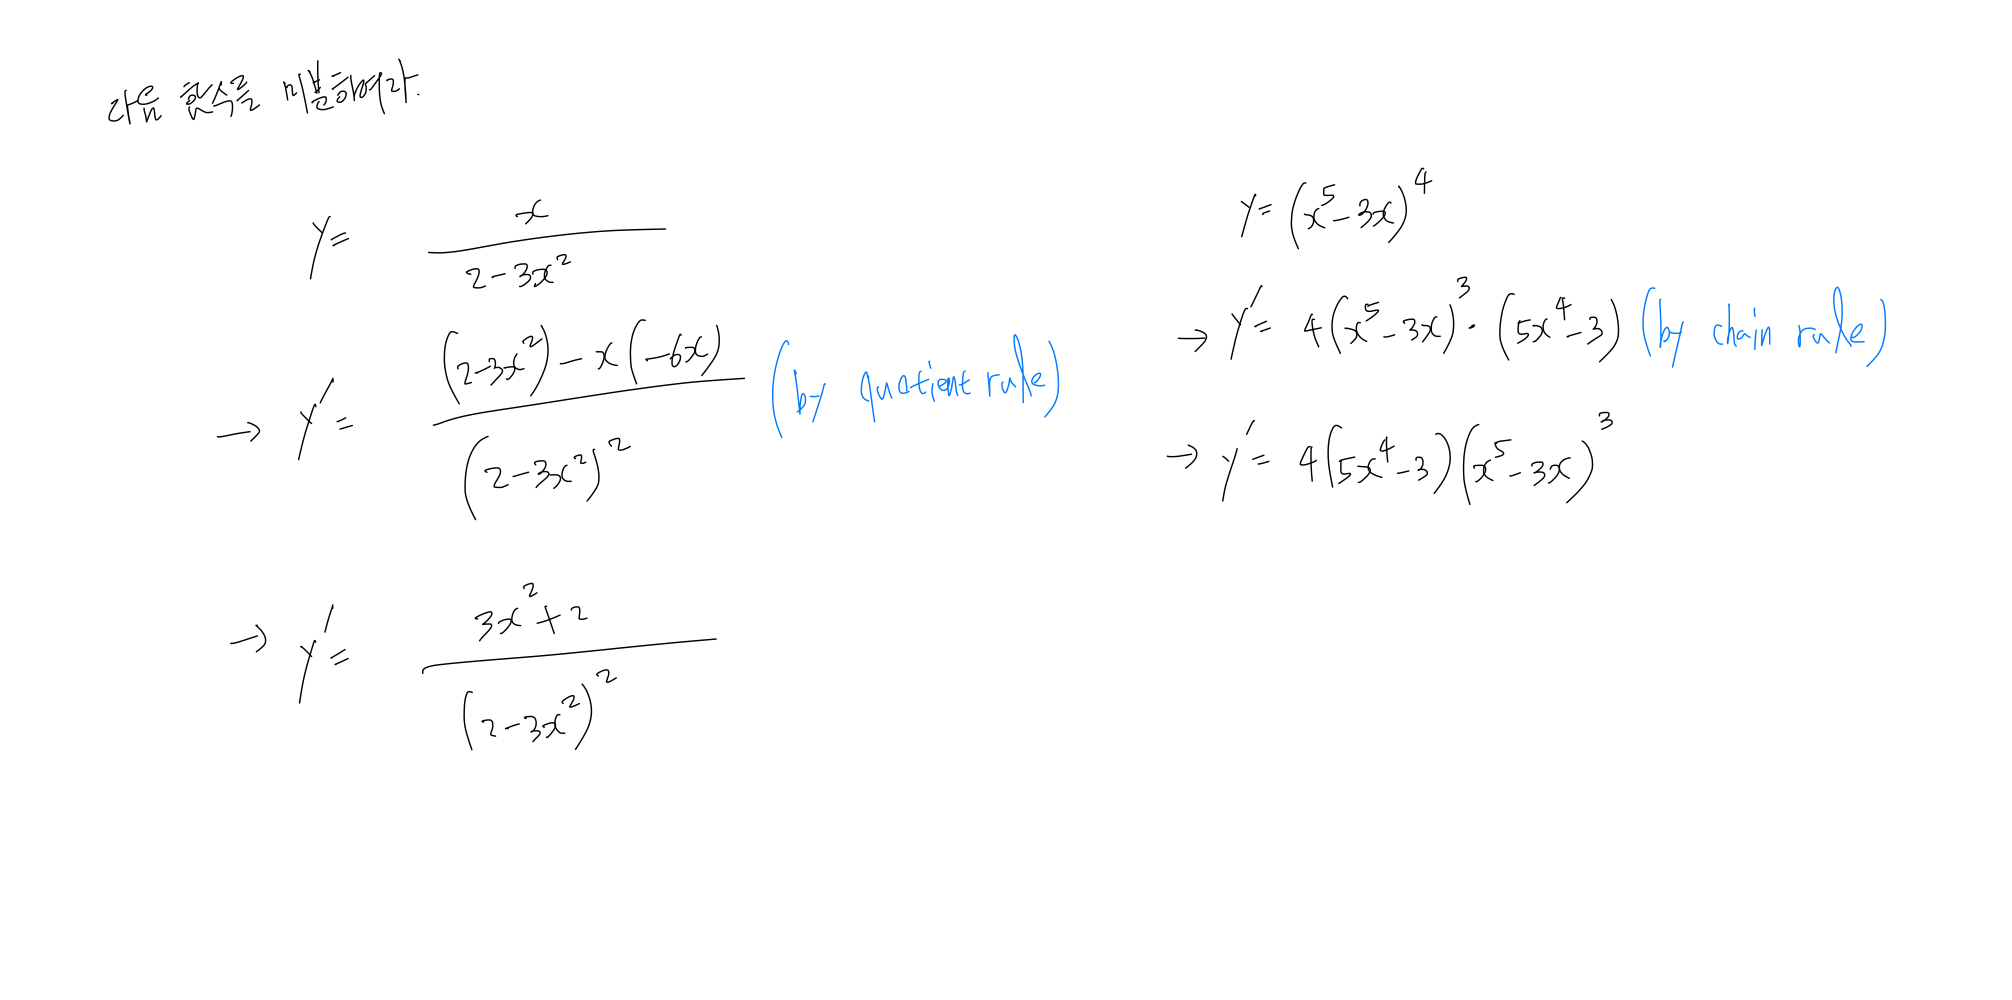 다음 함수를 미분하여라.
y = x / (2-3x²)
→ y' = ((2-3x²) - x(-6x)) / (2-3x²)² (by quotient rule)
→ y' = (3x²+2) / (2-3x²)²
y = (x⁵-3x)⁴
→ y' = 4(x⁵-3x)³ · (5x⁴-3) (by chain rule)
→ y' = 4(5x⁴-3)(x⁵-3x)³